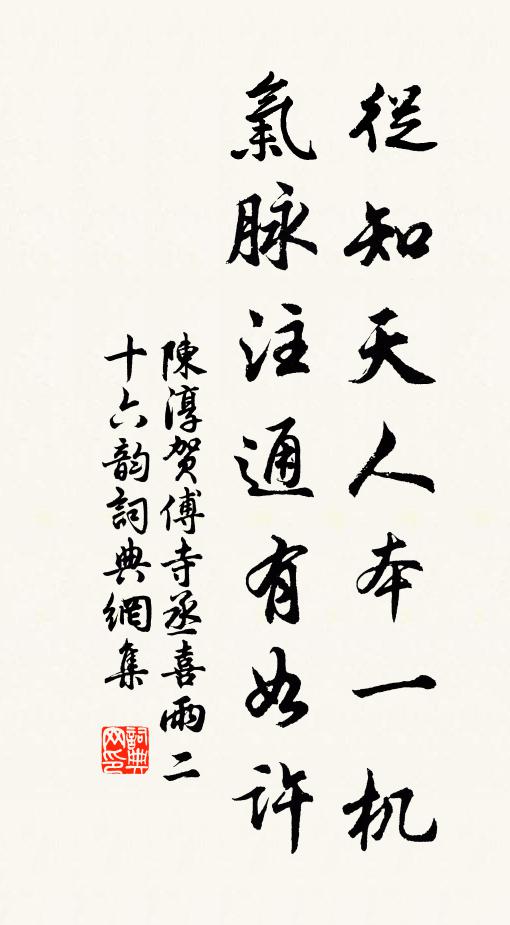 從知天人本一机
氣脉注通有如许
陳淳贺傅寺丞喜雨二
十六韵詞典網集
詞典网印